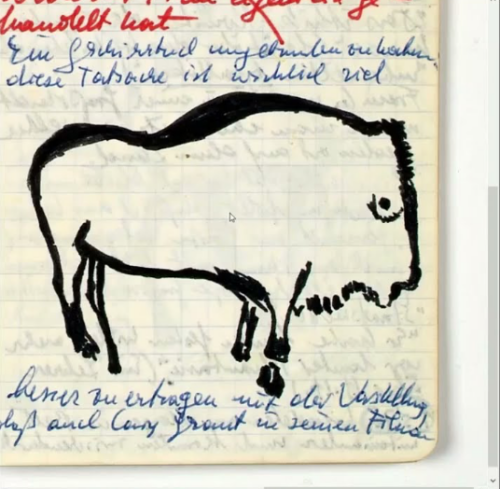 handelt hat
Ein Geschirrtuch umgebunden zu haben,
diese Tatsache ist wirklich viel
besser zu ertragen mit der Vorstellung
daß auch Cary Grant in seinen Filmen